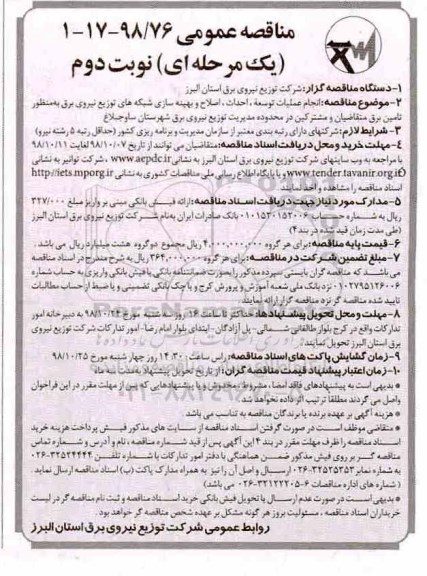 مناقصه عمومی ۹۸/۷۶-۱۷-۱
(یک مرحله ای) نوبت دوم
۱-دستگاه مناقصه گزار: شرکت توزیع نیروی برق استان البرز
۲-موضوع مناقصه: انجام عملیات توسعه، احداث، اصلاح و بهینه سازی شبکه های توزیع نیروی برق به منظور
تامین برق متقاضیان و مشترکین در محدوده مدیریت توزیع نیروی برق شهرستان ساوجبلاغ
۳- شرایط لازم: شرکتهای دارای رتبه بندی معتبر از سازمان مدیریت و برنامه ریزی کشور (حداقل رتبه ۵ رشته نیرو)
۴-مهلت خرید و محل دریافت اسناد مناقصه: متقاضیان می توانند از تاریخ ۹۸/۱۰/۰۷ لغایت ۹۸/۱۰/۱۱
با مراجعه به وب سایتهای شرکت توزیع نیروی برق استان البرز به نشانی www.aepdc.ir، شرکت توانیر به نشانی
www.tender.tavanir.org.ir و یا پایگاه اطلاع رسانی ملی مناقصات کشوری به نشانی http://iets.mporg.ir
اسناد مناقصه را مشاهده و اخذ نمایند
۵- مدارک مورد نیاز جهت دریافت اسناد مناقصه: ارائه فیش بانکی مبنی بر واریز مبلغ ۳۲۷/۰۰۰
ریال به شماره حساب ۰۱۰۱۵۲۰۱۵۲۰۰۶ بانک صادرات ایران به نام شرکت توزیع نیروی برق استان البرز
(طی مدت زمان قید شده در بند ۴)
۶- قیمت پایه مناقصه: برای هر گروه ۴،۰۰۰،۰۰۰،۰۰۰ ریال مجموع دو گروه هشت میلیارد ریال می باشد.
۷-مبلغ تضمین شرکت در مناقصه: برای هر گروه ۲۶۴،۰۰۰،۰۰۰ ریال به شرح مندرج در اسناد مناقصه
می باشد که مناقصه گران بایستی سپرده مذکور را بصورت ضمانتنامه بانکی یا فیش بانکی واریزی به حساب شماره
۰۱۰۲۷۹۵۱۲۶۰۰۶ نزد بانک ملی شعبه آموزش و پرورش کرج و یا چک بانکی تضمینی و یا ضبط از حساب مطالبات
تایید شده مناقصه گر نزد مناقصه گزار ارائه نمایند
۸-مهلت و محل تحویل پیشنهادها: حداکثر تا ساعت ۱۶ روز سه شنبه مورخ ۹۸/۱۰/۲۴ به دبیرخانه امور
تدارکات واقع در کرج-بلوار طالقانی شمالی- پل آزادگان- ابتدای بلوار امام رضا- امور تدارکات شرکت توزیع نیروی
برق استان البرز تحویل نمایند.
۹-زمان گشایش پاکت های اسناد مناقصه: راس ساعت: ۱۴:۳۰ روز چهار شنبه مورخ ۹۸/۱۰/۲۵
۱۰-زمان اعتبار پیشنهاد قیمت مناقصه گران: از تاریخ تحویل پیشنهاد به مدت سه ماه
* بدیهی است به پیشنهادهای فاقد امضا، مشروط، مخدوش و یا پیشنهادهایی که پس از مهلت مقرر در این فراخوان
واصل می گردند مطلقا ترتیب اثر داده نخواهد شد
* هزینه آگهی بر عهده برنده یا برندگان مناقصه به تناسب می باشد
* متقاضی موظف است در صورت گرفتن اسناد مناقصه از سایت های مذکور فیش پرداخت هزینه خرید
اسناد مناقصه را ظرف مهلت مقرر در بند ۴ این آگهی پس از قید شماره مناقصه، نام و آدرس و شماره تماس
مناقصه گر بر روی فیش مذکور ضمن هماهنگی با دفتر امور تدارکات با شماره تلفن ۳۲۵۲۴۴۴۴-۰۲۶
به شماره نمابر ۳۲۵۲۵۲۵۳-۰۲۶ ارسال و اصل آن را نیز به همراه مدارک پاکت (ب) اسناد مناقصه ارسال نماید.
(شماره های اداره مناقصات ۶-۳۲۱۲۲۲۰۵-۰۲۶ می باشد)
* بدیهی است در صورت عدم ارسال یا تحویل فیش بانکی خرید اسناد مناقصه و ثبت نام مناقصه گر در لیست
خریداران اسناد مناقصه، مسئولیت بروز هر گونه مشکل بر عهده شخص مناقصه گر خواهد بود.
روابط عمومی شرکت توزیع نیروی برق استان البرز